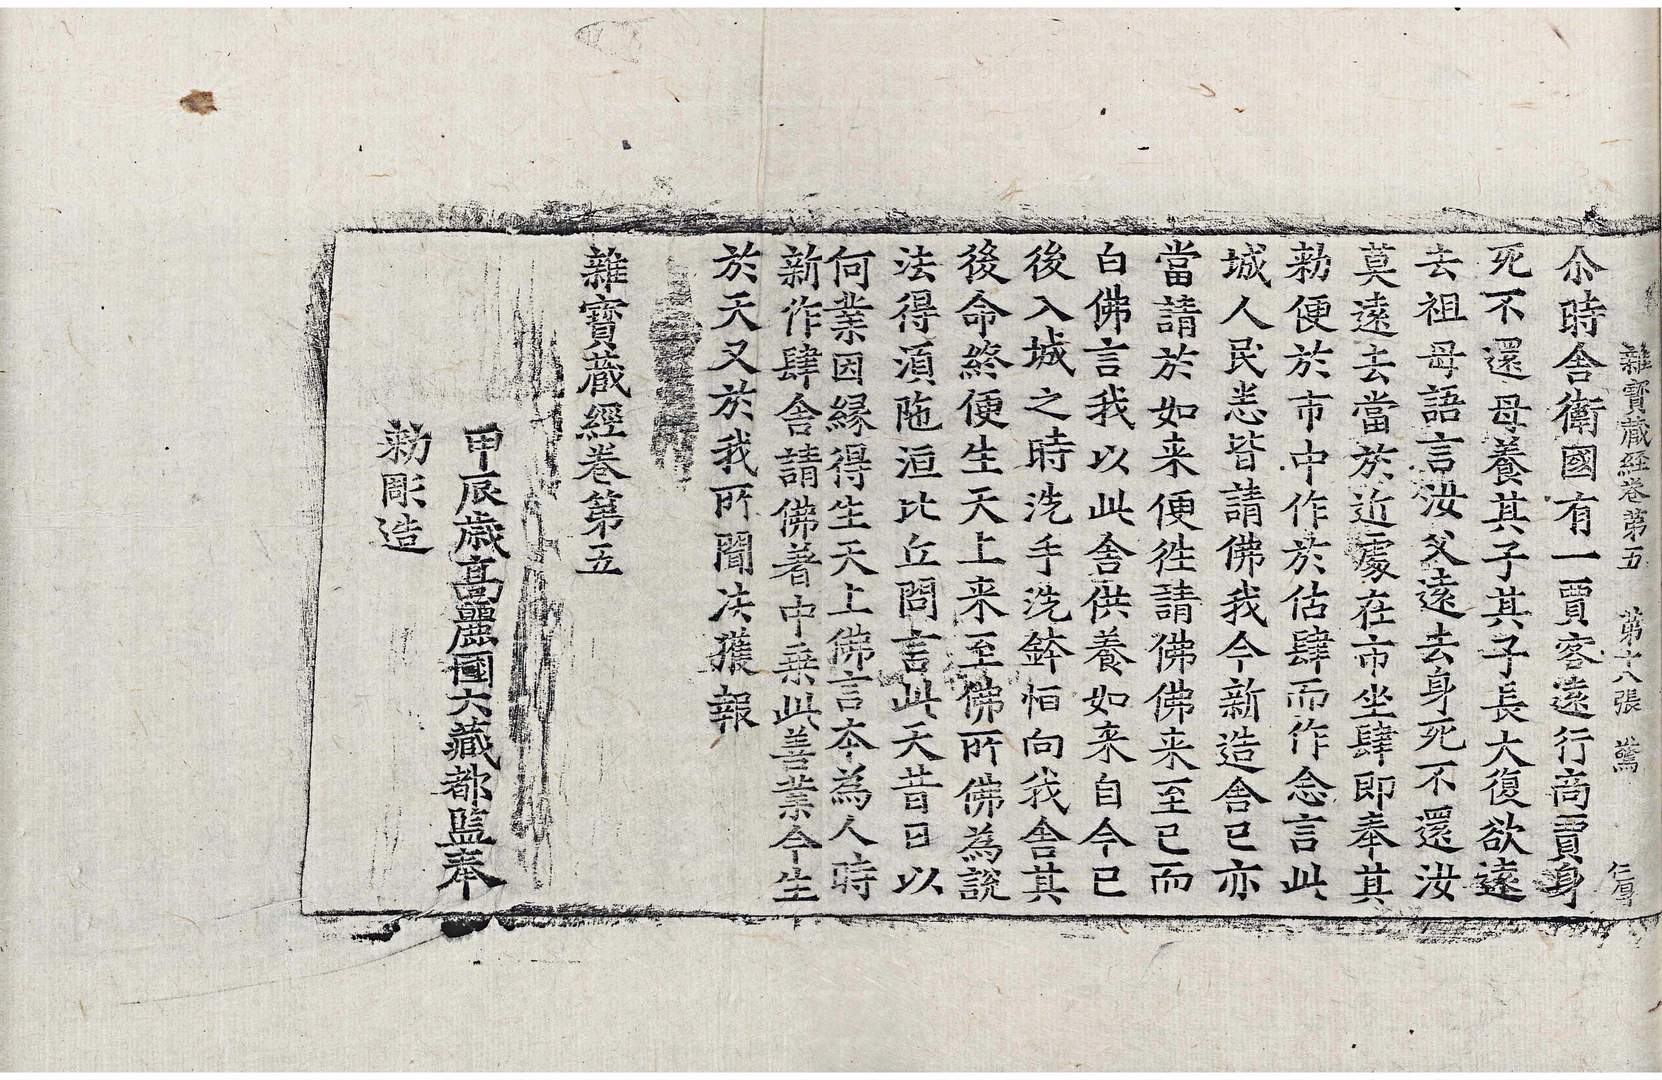 雜寶蔵経卷苐五　苐十八張　驚　仁厚
尒時舎衛國有一賈客遠行商賈身
死不還母養其子其子長大復欲遠
去祖母語言汝父遠去身死不還汝
莫遠去當於近處在市坐肆即奉其
勑便於市中作於估肆而作念言此
城人民悉皆請佛我今新造舎已亦
當請於如来便徃請佛佛来至已而
白佛言我以此舎供養如来自今已
後入城之時洗手洗鉢恒向我舎其
後命終便生天上来至佛所佛為說
法得湏陁洹比丘問言此天昔日以
何業因縁得生天上佛言本為人時
新作肆舎請佛著中乗此善業今生
於天又於我所聞法獲報
雜寶蔵經卷第五
甲辰歳髙麗國大藏都監奉
勑彫造